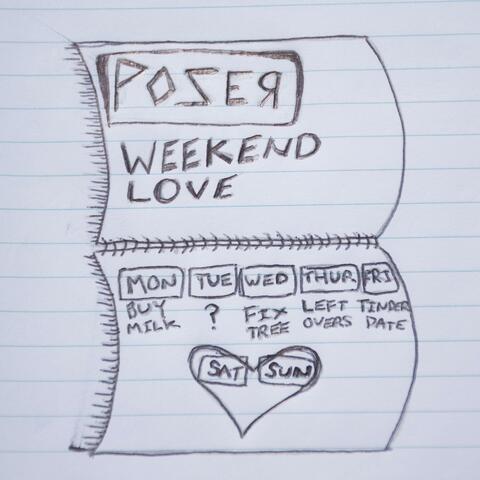 POZER
WEEKEND
LOVE
MON TUE WED THUR FRI
BUY MILK ? FIX TREE LEFT OVERS TINDER DATE
SAT SUN